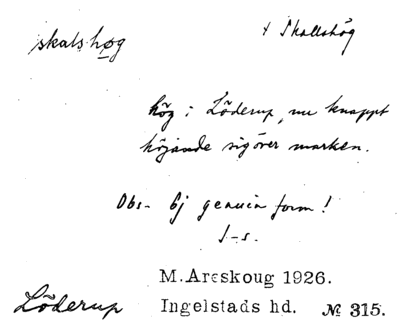 skalshøg
† Skallshög
hög i Löderup, nu knappt
höjande sig över marken.
Obs. Ej genuin form!
J-s.
M. Areskoug 1926.
Löderup Ingelstads hd. № 315.